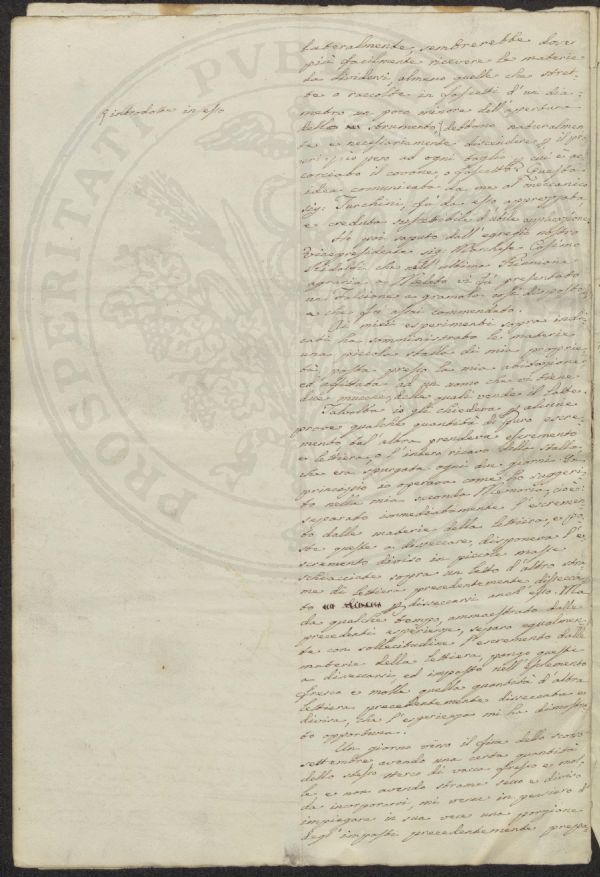 lateralmente, sembrerebbe dover
più facilmente ricevere le materie
da dividersi, almeno quelle che stret-
te o raccolte in fascetti d'un dia-
metro un poco minore dell'apertura
introdotte in esso
dello strumento, debbano naturalmen-
te e necessariamente discendere il
ad ogni taglio cui è ac-
corciato il o fascetto. Questa
idea comunicata da me al meccanico
sig. Turchini, fu da esso apprezzata
e creduta suscettibile d'utile applicazione.
Ho poi saputo dall'egregio nostro
Vicepresidente sig. Marchese Cosimo
Ridolfi, che nell'ultima Riunione
agraria a Meleto vi fu presentato
un e
e che fu assai commendato.
Ai miei esperimenti sopra indi-
cati ha somministrato le materie
una piccola stalla di mia proprie-
tà, posta presso la mia abitazione
ed affittata ad un uomo che vi tiene
due mucche, delle quali vende il latte.
Talvolta io gli chiedeva alcune
prove qualche quantità di puro escre-
mento, tal'altra prendeva escremento
e lettiera, o l'intero ricavo della stalla
che era spurgata ogni due giorni. In
principio io operava come ho suggeri-
to nella mia seconda Memoria, cioè
separato immediatamente l'escremen-
to dalle materie della lettiera, e po-
ste queste a disseccare, disponeva l'e-
scremento diviso in piccole masse
schiacciate sopra un letto d'altro stra-
me di lettiera precedentemente dissecca-
to disseccarsi anch'esso. Ma
da qualche tempo, ammaestrato dalle
precedenti esperienze, separo egualmen-
te con sollecitudine l'escremento dalle
materie della lettiera, pongo queste
a disseccarsi, ed impasto nell'escremento
fresco e molle quella quantità d'altra
lettiera precedentemente disseccata e
divisa, che l'esperienza mi ha dimostra-
to opportuna.
Un giorno verso il fine dello scorso
settembre, avendo una certa quantità
dello stesso sterco di vacca fresco e mol-
le, e non avendo strame secco e diviso
da incorporarvi, mi venne in pensiero d'
impiegare in sua vece una porzione
degl'impasti precedentemente prepa-